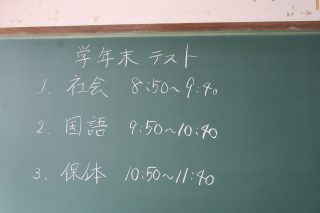 学年末 テスト
1. 社会 8:50〜9:40
2. 国語 9:50〜10:40
3. 保体 10:50〜11:40